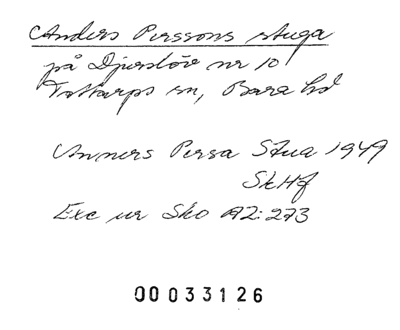 Anders Perssons stuga
på Djurslöv nr 10
Tottarps sn, Bara hd
Anners Persa Stua 1949
SkHf
Exc ur Sko A2:273
00033126